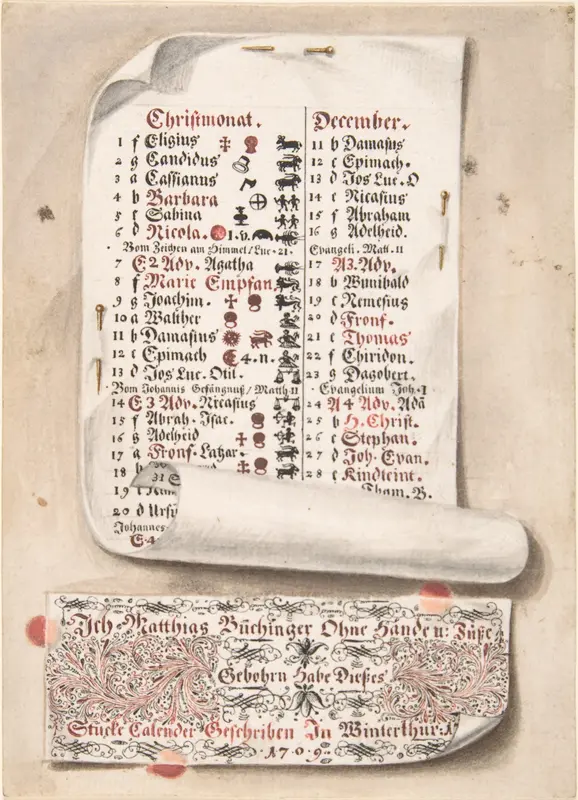 Christmonat.
1 f Eligius
2 g Candidus
3 a Cassianus
4 b Barbara
5 c Sabina
6 d Nicola. 1. v.
Vom Zeichen am Himmel/Luc. 21.
7 E 2 Adv. Agatha
8 f Marie Empfan.
9 g Joachim.
10 a Walther
11 b Damasius
12 c Epimach 4. n.
13 d Jos Luc. Otil.
Vom Johannis Gefängnuß/Matth 11
14 E 3 Adv. Nicasius
15 f Abrah. Isac.
16 g Adelheid
17 a Fronf. Lazar.
18 b
19 c
20 d Ursi
Johannes
E 4
31
December.
11 b Damasus
12 c Epimach.
13 d Jos Luc. O
14 e Nicasius
15 f Abraham
16 g Adelheid.
Evangeli. Matt. 11
17 A 3. Adv.
18 b Wunibald
19 c Nemesius
20 d Fronf.
21 e Thomas
22 f Chiridon.
23 g Dagobert.
Evangelium Joh. I
24 A 4 Adv. Adā
25 b H. Christ.
26 c Stephan.
27 d Joh. Evan.
28 e Kindleint.
Tham. B.
Ich Matthias Buchinger Ohne Hände u: Füße
Gebohrn Habe Dießes
Stucke Calender Geschriben In Winterthur: 1
1709